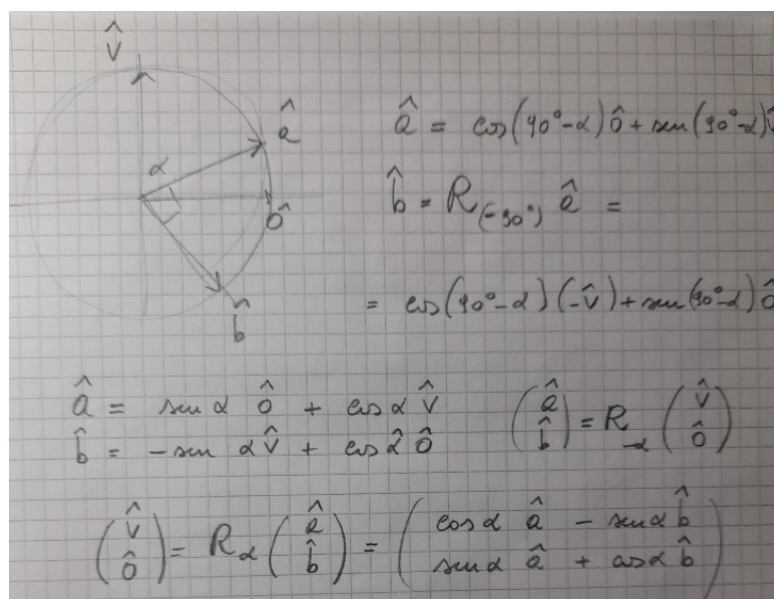 v̂
â
α
ô
b̂
â = cos(90°-α) ô + sen(90°-α) v̂
b̂ = R(-90°) â =
= cos(90°-α) (-v̂) + sen(90°-α) ô
â = sen α ô + cos α v̂
b̂ = - sen α v̂ + cos α ô
(â b̂) = R-α (v̂ ô)
(v̂ ô) = Rα (â b̂) = (cos α â - sen α b̂
sen α â + cos α b̂)